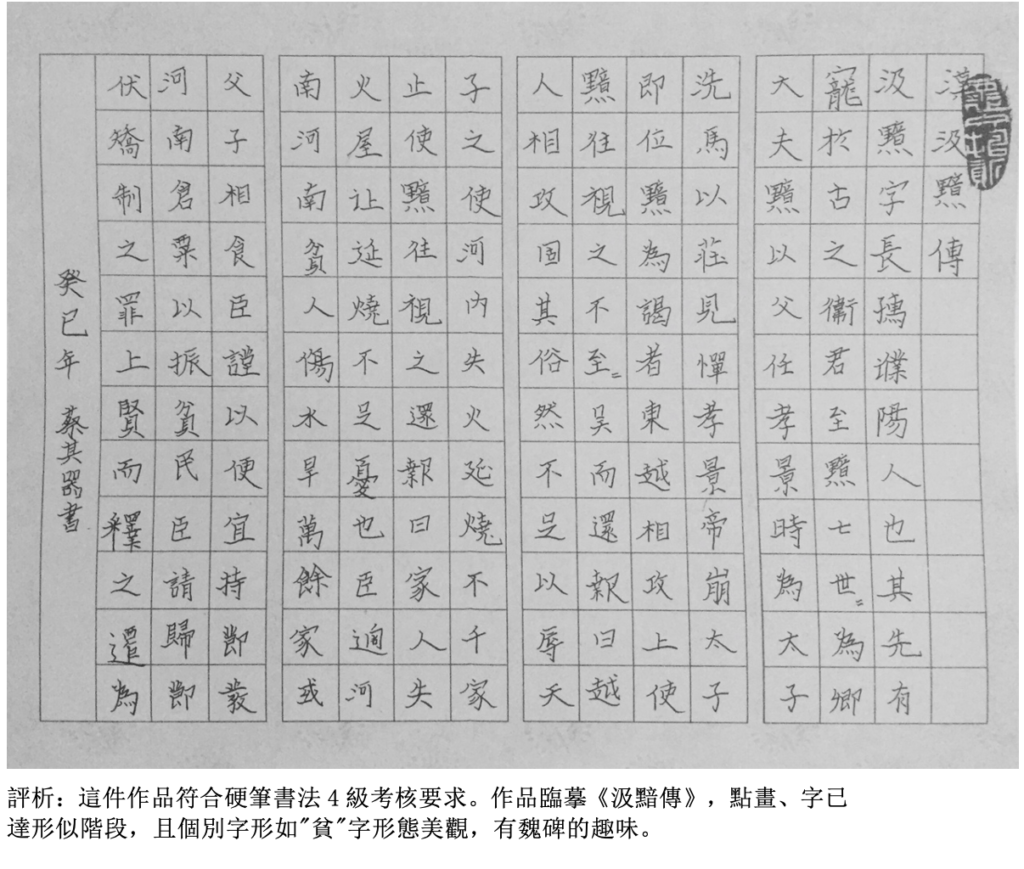 漢汲黯傳
汲黯字長孺濮陽人也其先有
寵於古之衞君至黯七世〻為卿
大夫黯以父任孝景時為太子
洗馬以莊見憚孝景帝崩太子
即位黯為謁者東越相攻上使
黯往視之不至〻吳而還報曰越
人相攻固其俗然不足以辱天
子之使河內失火延燒不千家
止使黯往視之還報曰家人失
火屋让延燒不足憂也臣過河
南河南貧人傷水旱萬餘家或
父子相食臣謹以便宜持節發
河南倉粟以振貧民臣請歸節
伏矯制之罪上賢而釋之遷為
癸巳年 蔡其器書
評析：這件作品符合硬筆書法4級考核要求。作品臨摹《汲黯傳》，點畫、字已
達形似階段，且個別字形如"貧"字形態美觀，有魏碑的趣味。